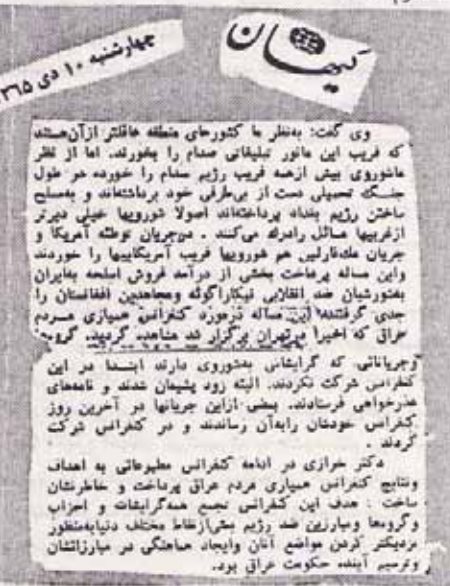 کیهان
چهارشنبه ۱۰ دی ۱۳۶۵
وی گفت: به‌نظر ما کشورهای منطقه عاقلتر از آن هستند
که فریب این مانور تبلیغاتی صدام را بخورند. اما از نظر
ما شوروی بیش از همه فریب رژیم صدام را خورده در طول
جنگ تحمیلی دست از بی‌طرفی خود برداشته‌اند و به‌مسلح
ساختن رژیم بغداد پرداخته‌اند اصولا شورویها خیلی دیرتر
از غربیها مسائل را درک می‌کنند . در جریان توطئه آمریکا و
جریان مک‌فارلین هم شورویها فریب آمریکاییها را خوردند
و این مساله پرداخت بخشی از درآمد فروش اسلحه به‌ایران
به‌شورشیان ضد انقلابی نیکاراگوئه و مجاهدین افغانستان را
جدی گرفتند این مساله در مورد کنفرانس همیاری مردم
عراق که اخیرا در تهران برگزار شد مشاهده گردید. گروهها
و جریاناتی، که گرایشاتی به‌شوروی دارند ابتدا در این
کنفرانس شرکت نکردند. البته زود پشیمان شدند و نامه‌های
عذرخواهی فرستادند. بعضی از این جریانها در آخرین روز
کنفرانس خودشان را به‌آن رساندند و در کنفرانس شرکت
کردند .
دکتر خرازی در ادامه کنفرانس مطبوعاتی به اهداف
ونتایج کنفرانس همیاری مردم عراق پرداخت و خاطرنشان
ساخت : هدف این کنفرانس تجمع همه گرایشات و احزاب
و گروهها ومبارزین ضد رژیم بعثی از نقاط مختلف دنیا به‌منظور
نزدیکتر کردن مواضع آنان وایجاد هماهنگی در مبارزاتشان
وترسیم آینده حکومت عراق بود.